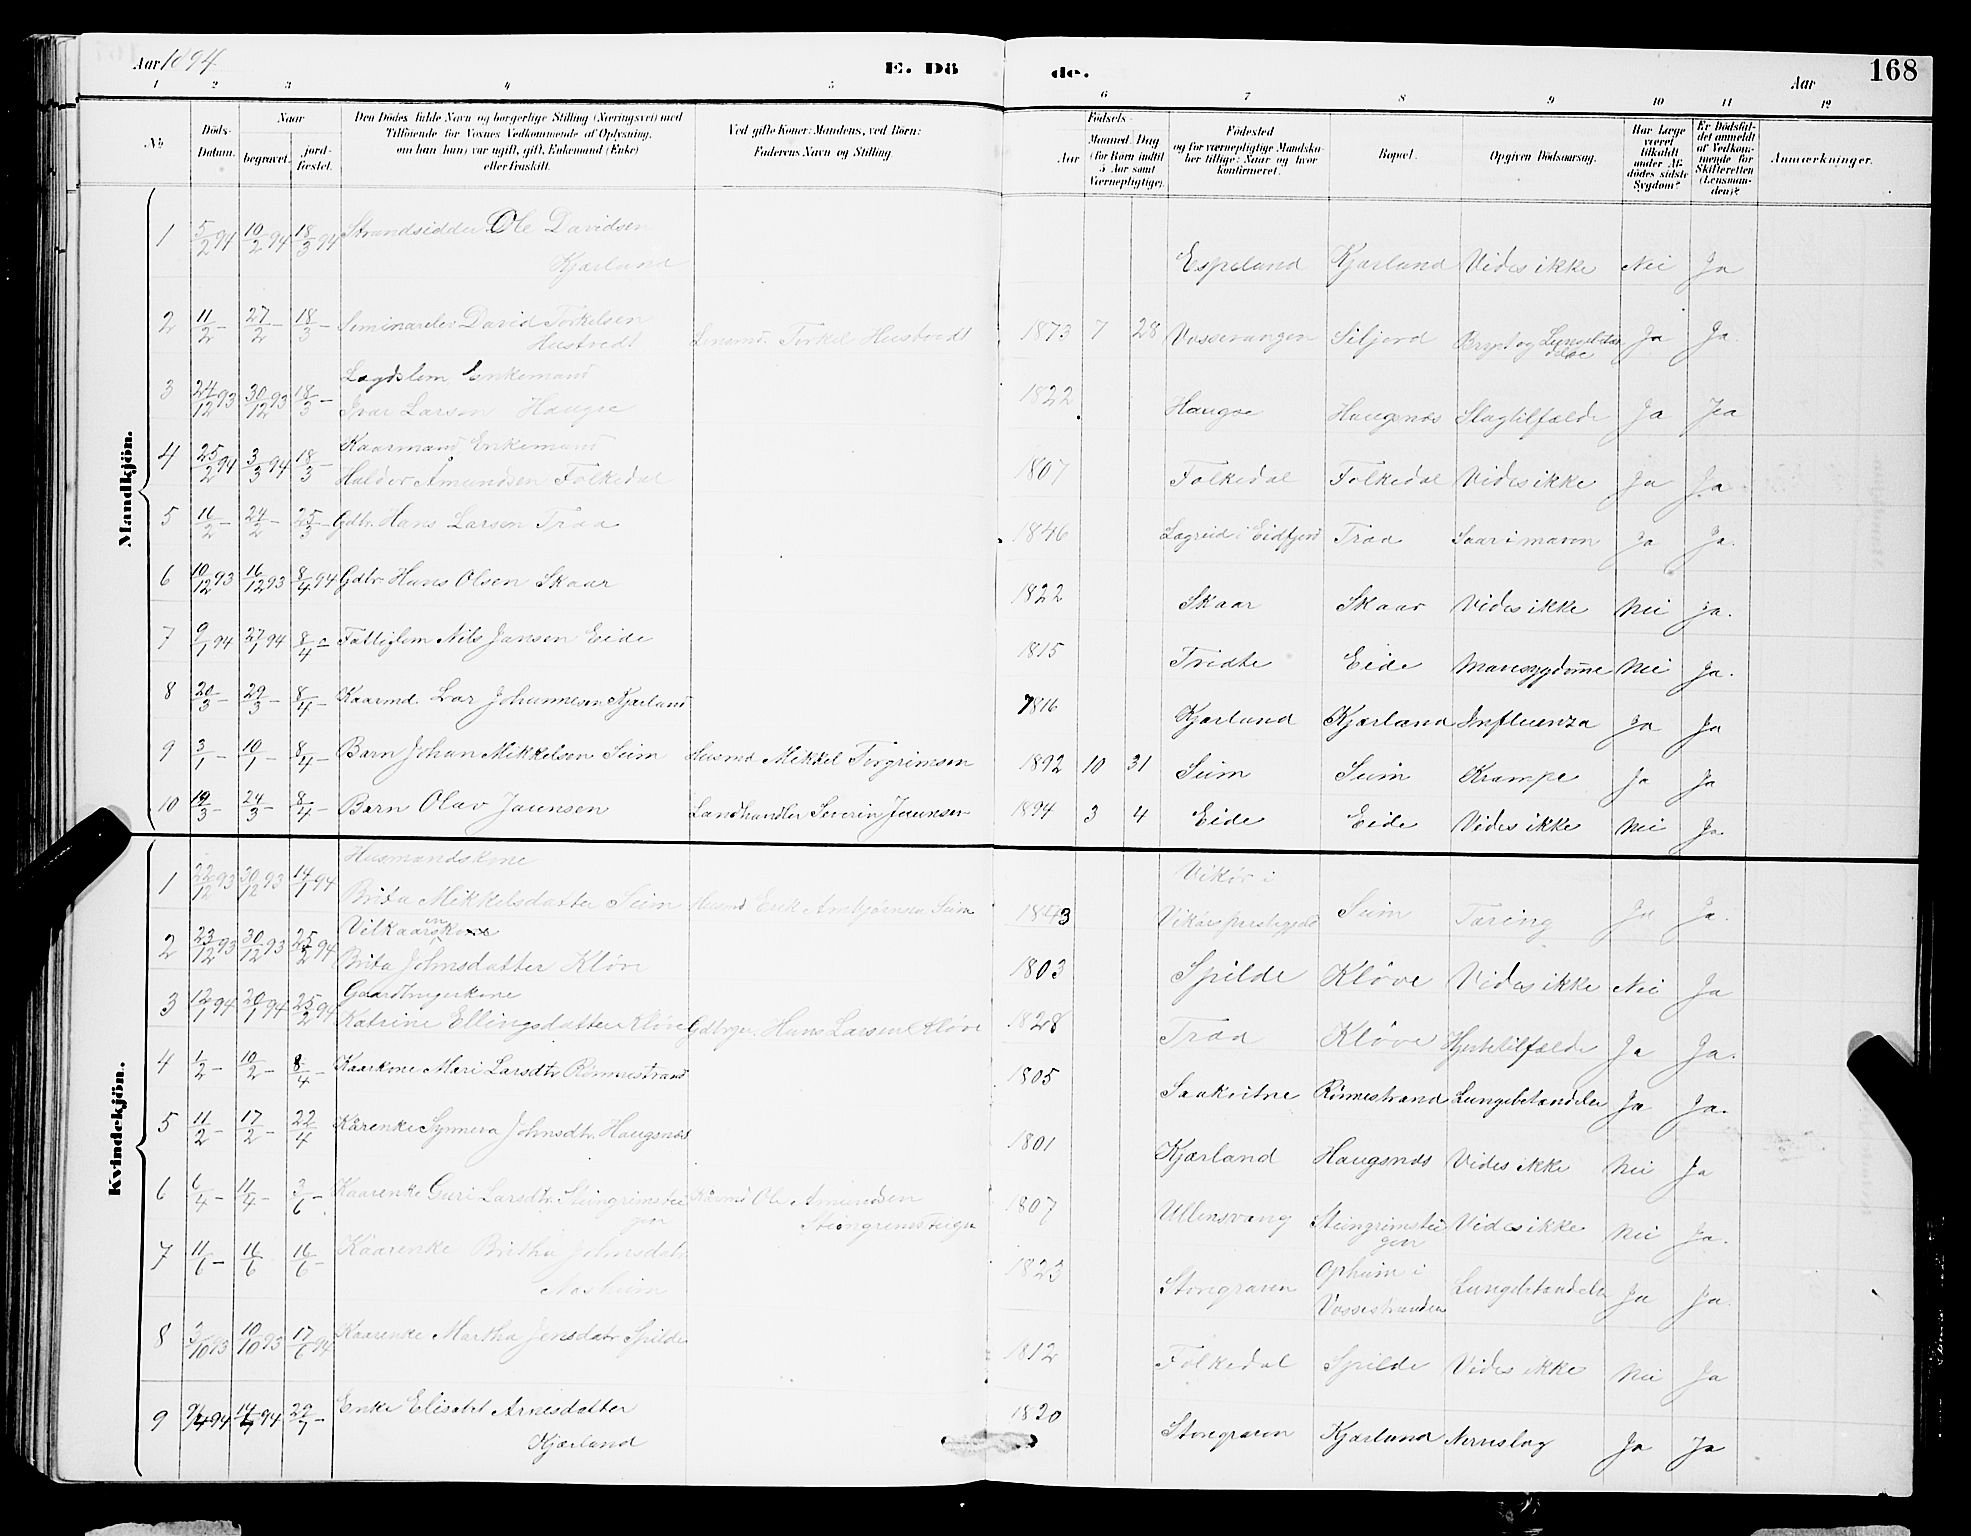 Aar 1894
E. Dö de.
Aar
168
1 2 3 4 5 6 7 8 9 10 11 12
No.
Döds-Datum.
Naar
begravet.
jord-fæstet.
Den Dödes fulde Navn og borgerlige Stilling (Næringsvei) med
Tilföiende for Voxnes Vedkommende af Oplysning,
om han (hun) var ugift, gift, Enkemand (Enke)
eller fraskilt.
Ved gifte Koner: Mandens, ved Börn:
Faderens Navn og Stilling.
Födsels-
Aar
Maaned Dag
(for Börn indtil
5 Aar samt
Værnepligtige).
Födested
og for værnepligtige Mandska-
ber tillige: Naar og hvor
konfirmeret.
Bopæl.
Opgiven Dödsaarsag.
Har Læge
været
tilkaldt
under Af-
dödes sidste
Sygdom?
Er Dödsfal-
det anmeldt
af Vedkom-
mende for
Skifteretten
(Lensman-
den)?
Anmærkninger.
Mandkjön.
1 5/2 94 10/2 94 18/3 94 Strandsidder Ole Davidsen
Kjærland Espeland Kjærland Vides ikke Nei Ja
2 11/2 – 27/2 – 18/3 – Seminarelev David Torkelsen
Hustvedt Lensmd. Torkel Hustvedt 1873 7 28 Vossevangen Siljord Bryst og Lungebetæn
delse Ja Ja.
3 24/12 93 30/12 93 18/3 – Lægdslem Enkemand
Ivar Larsen Haugse 1822 Haugse Haugsnæs Slagtilfælde Ja Ja
4 25/2 94 3/3 94 18/3 – Kaarmand Enkemand
Haldor Amundsen Folkedal 1807 Folkedal Folkedal Vides ikke Ja Ja
5 16/2 – 24/2 – 25/3 – Gdbr. Hans Larsen Traa 1846 Lægreid i Eidfjord Traa Saar i maven Ja Ja.
6 10/12 93 16/12 93 8/4 94 Gdbr Hans Olsen Skaar 1822 Skaar Skaar Vides ikke Nei ja.
7 9/1 94 27/1 94 8/4 – Fattiglem Nils Jansen Eide 1815 Tvedte Eide Mavesygdomme Nei Ja.
8 20/3 – 29/3 – 8/4 – Kaarmd. Lar Johannesen Kjærland 1816 Kjærland Kjærland Influenza Ja Ja
9 3/1 – 10/1 – 8/4 – Barn Johan Mikkelsen Seim Husmd Mikkel Torgrimsen 1892 10 31 Seim Seim Krampe Ja Ja
10 19/3 – 24/3 – 8/4 – Barn Olav Jaunsen Landhandler Severin Jaunsen 1894 3 4 Eide Eide Vides ikke Nei Ja.
Kvindekjön.
1 22/12 93 30/12 93 14/1 94 Husmandskone
Brita Mikkelsdatter Seim Husmd Erik Ambjørnsen Seim 1843 Vikör i
Vikörs præstegjeld Seim Tæring Ja Ja.
2 23/12 93 30/12 93 25/2 94 Vilkaarsenke
Brita Johnsdatter Kløve 1803 Spilde Kløve Vides ikke Nei Ja
3 12/1 94 20/1 94 25/2 94 Gaardbrugerkone
Katrine Ellingsdatter Kløve Gdbrgr. Hans Larsen Kløve 1828 Traa Kløve Hjertetilfælde Ja Ja.
4 1/2 – 10/2 – 8/4 – Kaarkone Mari Larsdtr Rønnestrand 1805 Saakvitne Rønnestrand Lungebetændelse Ja Ja.
5 11/2 – 17/2 – 22/4 Kårenke Synneva Johnsdtr. Haugsnæs 1801 Kjærland Haugsnæs Vides ikke Nei Ja
6 6/4 – 11/4 – 3/6 – Kaarenke Guri Larsdtr. Steingrimstei
gen Kårmd Ole Amundsen
Steingrimsteigen 1807 Ullensvang Steingrimstei
gen Vides ikke Nei Ja.
7 11/6 – 16/6 16/6 – Kaarenke Britha Johnsdatr.
Næsheim 1823 Storegraven Opheim i
Vossestranden Lungebetændelse Ja Ja.
8 3/10 93 10/10 93 17/6 94 Kaarenke Martha Jensdatr Spilde 1812 Folkedal Spilde Vides ikke Nei Ja
9 94 94 29/7 – Enke Elisabet Arnesdatter
Kjærland 1820 Storegraven Kjærland Nerveslag Ja Ja